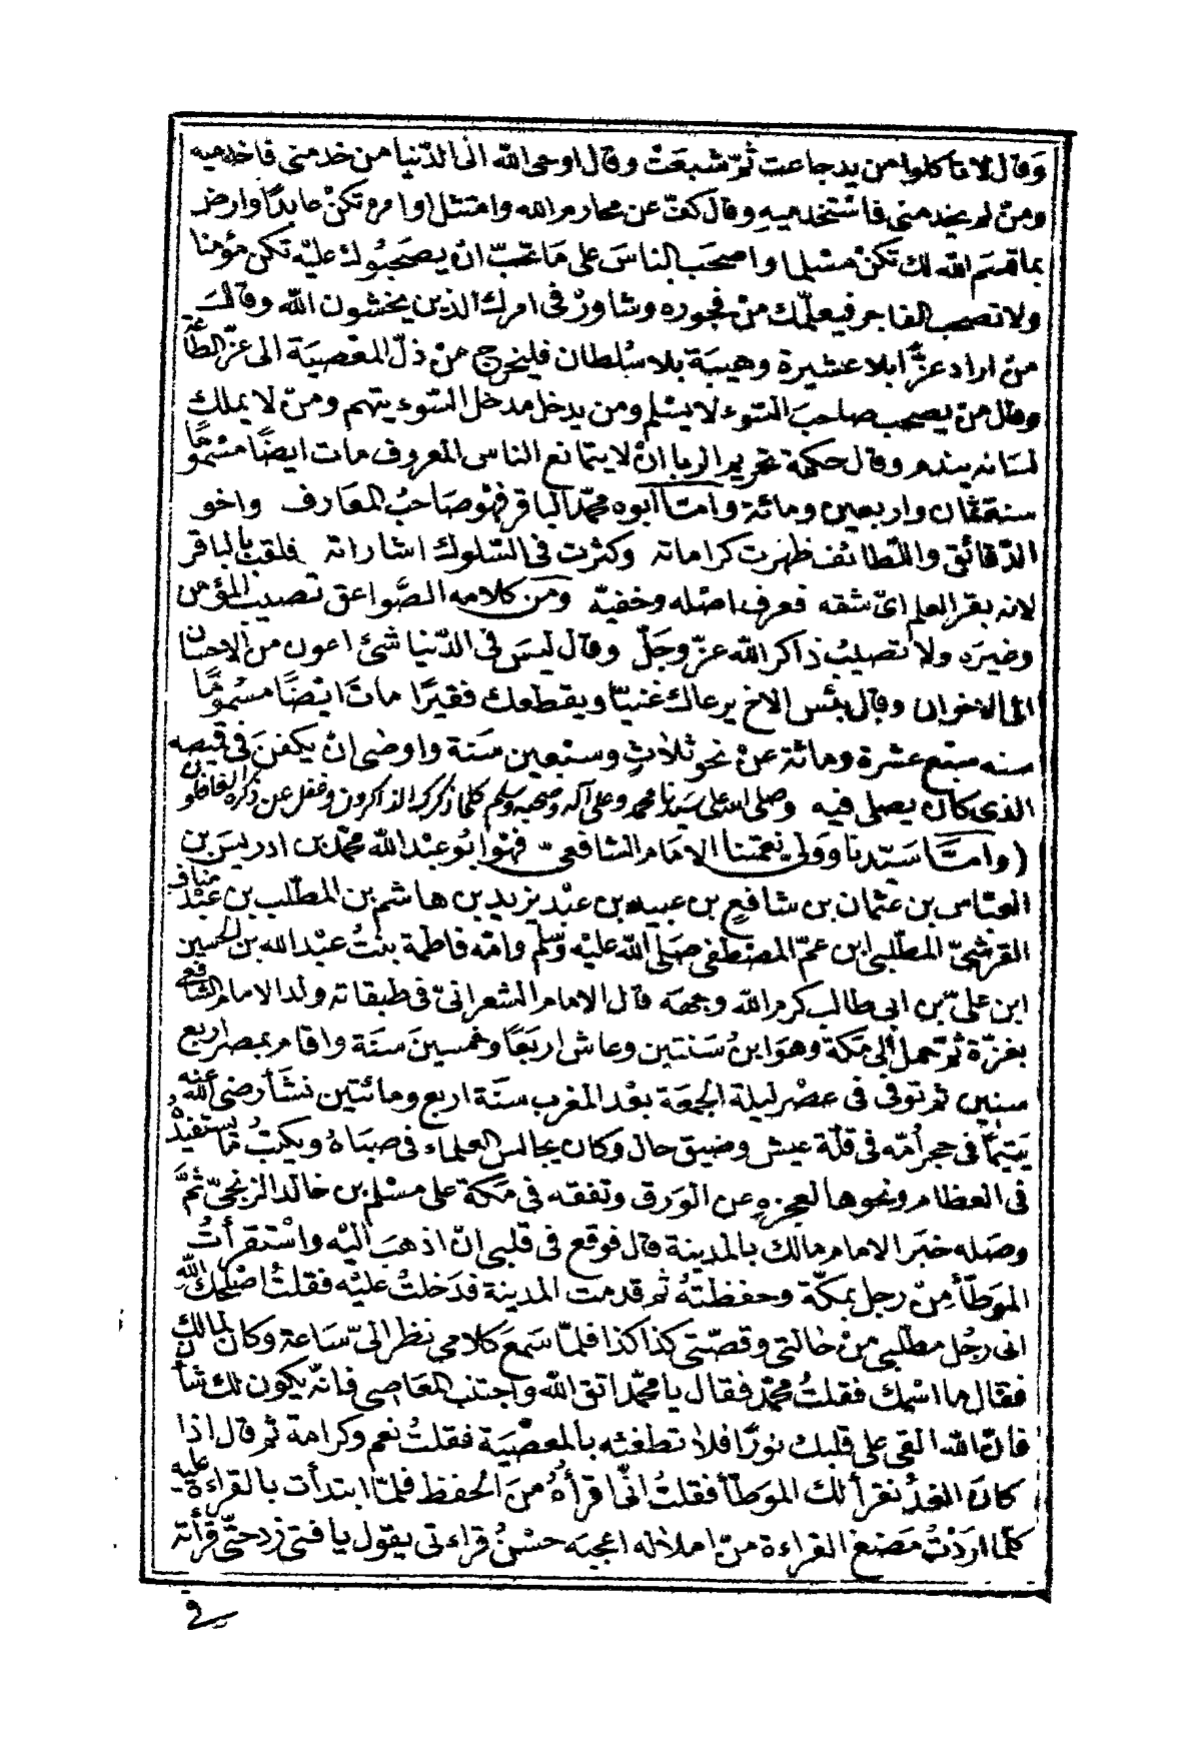 وَقال لا تأكلوا من يد جاعت ثمّ شبعَتْ وقال اوحى الله الى الدّنيا من خدمنى فاخدميه
ومنْ لم يخدمنى فاسْتخدميهِ وقال كفّ عن محارم الله وامتثل اوامره تكنْ عابدًا وارض
بما قسَم الله لك تكنْ مسْلما واصحَب الناسَ على مَا تحبّ انْ يصحَبُوك عليْه تكن مؤمنا
ولا تصحب الفاجر فيعلّمك منْ فجوره وشاورْ فى امرك الذين يخشون الله وقالـَ
منْ اراد عزًّا بلا عشيرة وهيبَة بلا سُلطان فليخرج منْ ذلّ المعْصيَة الى عزّ الطاعَة
وقال منْ يصحب صاحبَ السّوء لا يسْلم ومن يدخل مدخل السّوء يتهم ومنْ لا يملك
لسَانه يندم وقال حكمة تحريم الربا انْ لا يتمانع الناس المعروف مات ايضًا مسْمومًا
سنة ثمان واربعين ومائة وامتا ابوه محمّد الباقر فهْو صَاحبُ المعَارف واخو
الدّقائق واللّطائف ظهرت كراماته وكثرت فى السّلوك اشاراته فلقبَ بالباقر
لانه بقر العلم اىْ شقه فعرف اصْله وخفيّه ومن كلامه الصَّواعق تصيبُ المؤمن
وغيرَه ولا تصيْبُ ذاكر الله عزّ وجَلّ وقال ليسَ فى الدّنيا شئ اعون من الاحسَان
الى الاخوان وقال بئس الاخ يرعاك غنيّا ويقطعك فقيرًا ماتَ ايْضًا مسْمُومًا
سنه سبْع عشرة ومائة عنْ نحو ثلاثٍ وسبْعين سَنة واوصَى انْ يكفنَ فى قميصه
الذى كان يصلى فيه وصلى الله على سيدنا محمد وعلى آله وصحبه وسلم كلما ذكرك الذاكرون وغفل عن ذكره الغافلون
(وامتَّا سَيّدنا وَولى نعمتنا الامام الشافعىّ فهْوابُو عبْد الله محمّد بن ادريسَ بن
العبّاس بن عثمان بن شافعٍ بن عبيد بن عبْد يزيد بن هاشم بن المطلّب بن عبْد مناف
القرشىّ المطلّبى ابن عمّ المصْطفى صَلى الله عليْه وَسْلم وامّه فاطمَة بنْتُ عبْد الله بن الحسين
ابن علىّ بن ابى طالب كرم الله وجهَه قال الامام الشعرانىّ فى طبقاته ولد الامام الشافعى
بغزّة ثم حمل الى مَكة وهوَ ابنُ سَنتين وعاش اربَعًا وخمسينَ سَنة واقام بمصر اربع
سنين ثم توفى فى عصْر ليلة الجمعَة بعْد المغرب سَنة اربع ومائتين نشأ رضى الله عنه
يَتيمًا فى حجر اُمّه فى قلّة عيش وضيق حال وكان يجالس العلماء فى صبَاهُ ويكتبُ مَا يستفيدُ
فى العظام ونحوها لعجزهِ عن الوَرق وتفقه فى مَكة على مسْلم بن خالد الزنجىّ ثمَّ
وصَله خبَر الامام مالك بالمدينة قال فوقع فى قلبى انْ اذهبَ اليْه واسْتقرأتُ
الموَطّأ مِنْ رجل بمكّة وحفظتهُ ثم قدمت المدينة فدَخلتُ عليْه فقلتُ اصْلحكَ اللهُ
انى رجُل مطلّبى منْ حالتى وقصّتى كذا كذا فلمّا سَمعَ كلامى نظر الىّ سَاعة وكان لمالك
فقال ما اسْمك فقلتُ محمّد فقال يا محمّد اتق الله واجتنب المعَاصى فانه يكون لك شأن
فانّ الله القى على قلبك نورًا فلا تطفئه بالمعْصيَة فقلتُ نعم وكرامة ثم قال اذا
كان الغدُ نقرأ لك الموَطّأ فقلتُ انّى اقرأهُ منَ الحفظ فلمّا ابتدأت بالقراءة عليه
كلّما اردْتُ القراءة منْ املاله اعجبَه حسْنُ قراءتى يقول يا فتى زد حتّى قرأته
فى